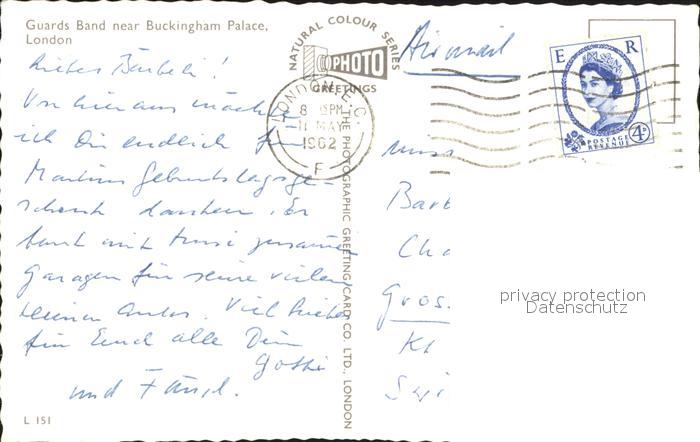 Guards Band near Buckingham Palace,
London
Liebes Bärbeli!
Von hier aus möchte
ich Dir endlich für
Martins Geburtstagsge-
schenk danken. Er
baut mit zusammen
Garagen für seine vielen
kleinen Autos. Viel Liebes
für Euch alle Dein
Gotti
und
L 151
NATURAL COLOUR SERIES
PHOTO
GREETINGS
THE PHOTOGRAPHIC GREETING CARD CO. LTD., LONDON
LONDON E.C.
8 PM
11 MAY
1962
F
Airmail
E R
4D
POSTAGE
REVENUE
Gros.
privacy protection
Datenschutz